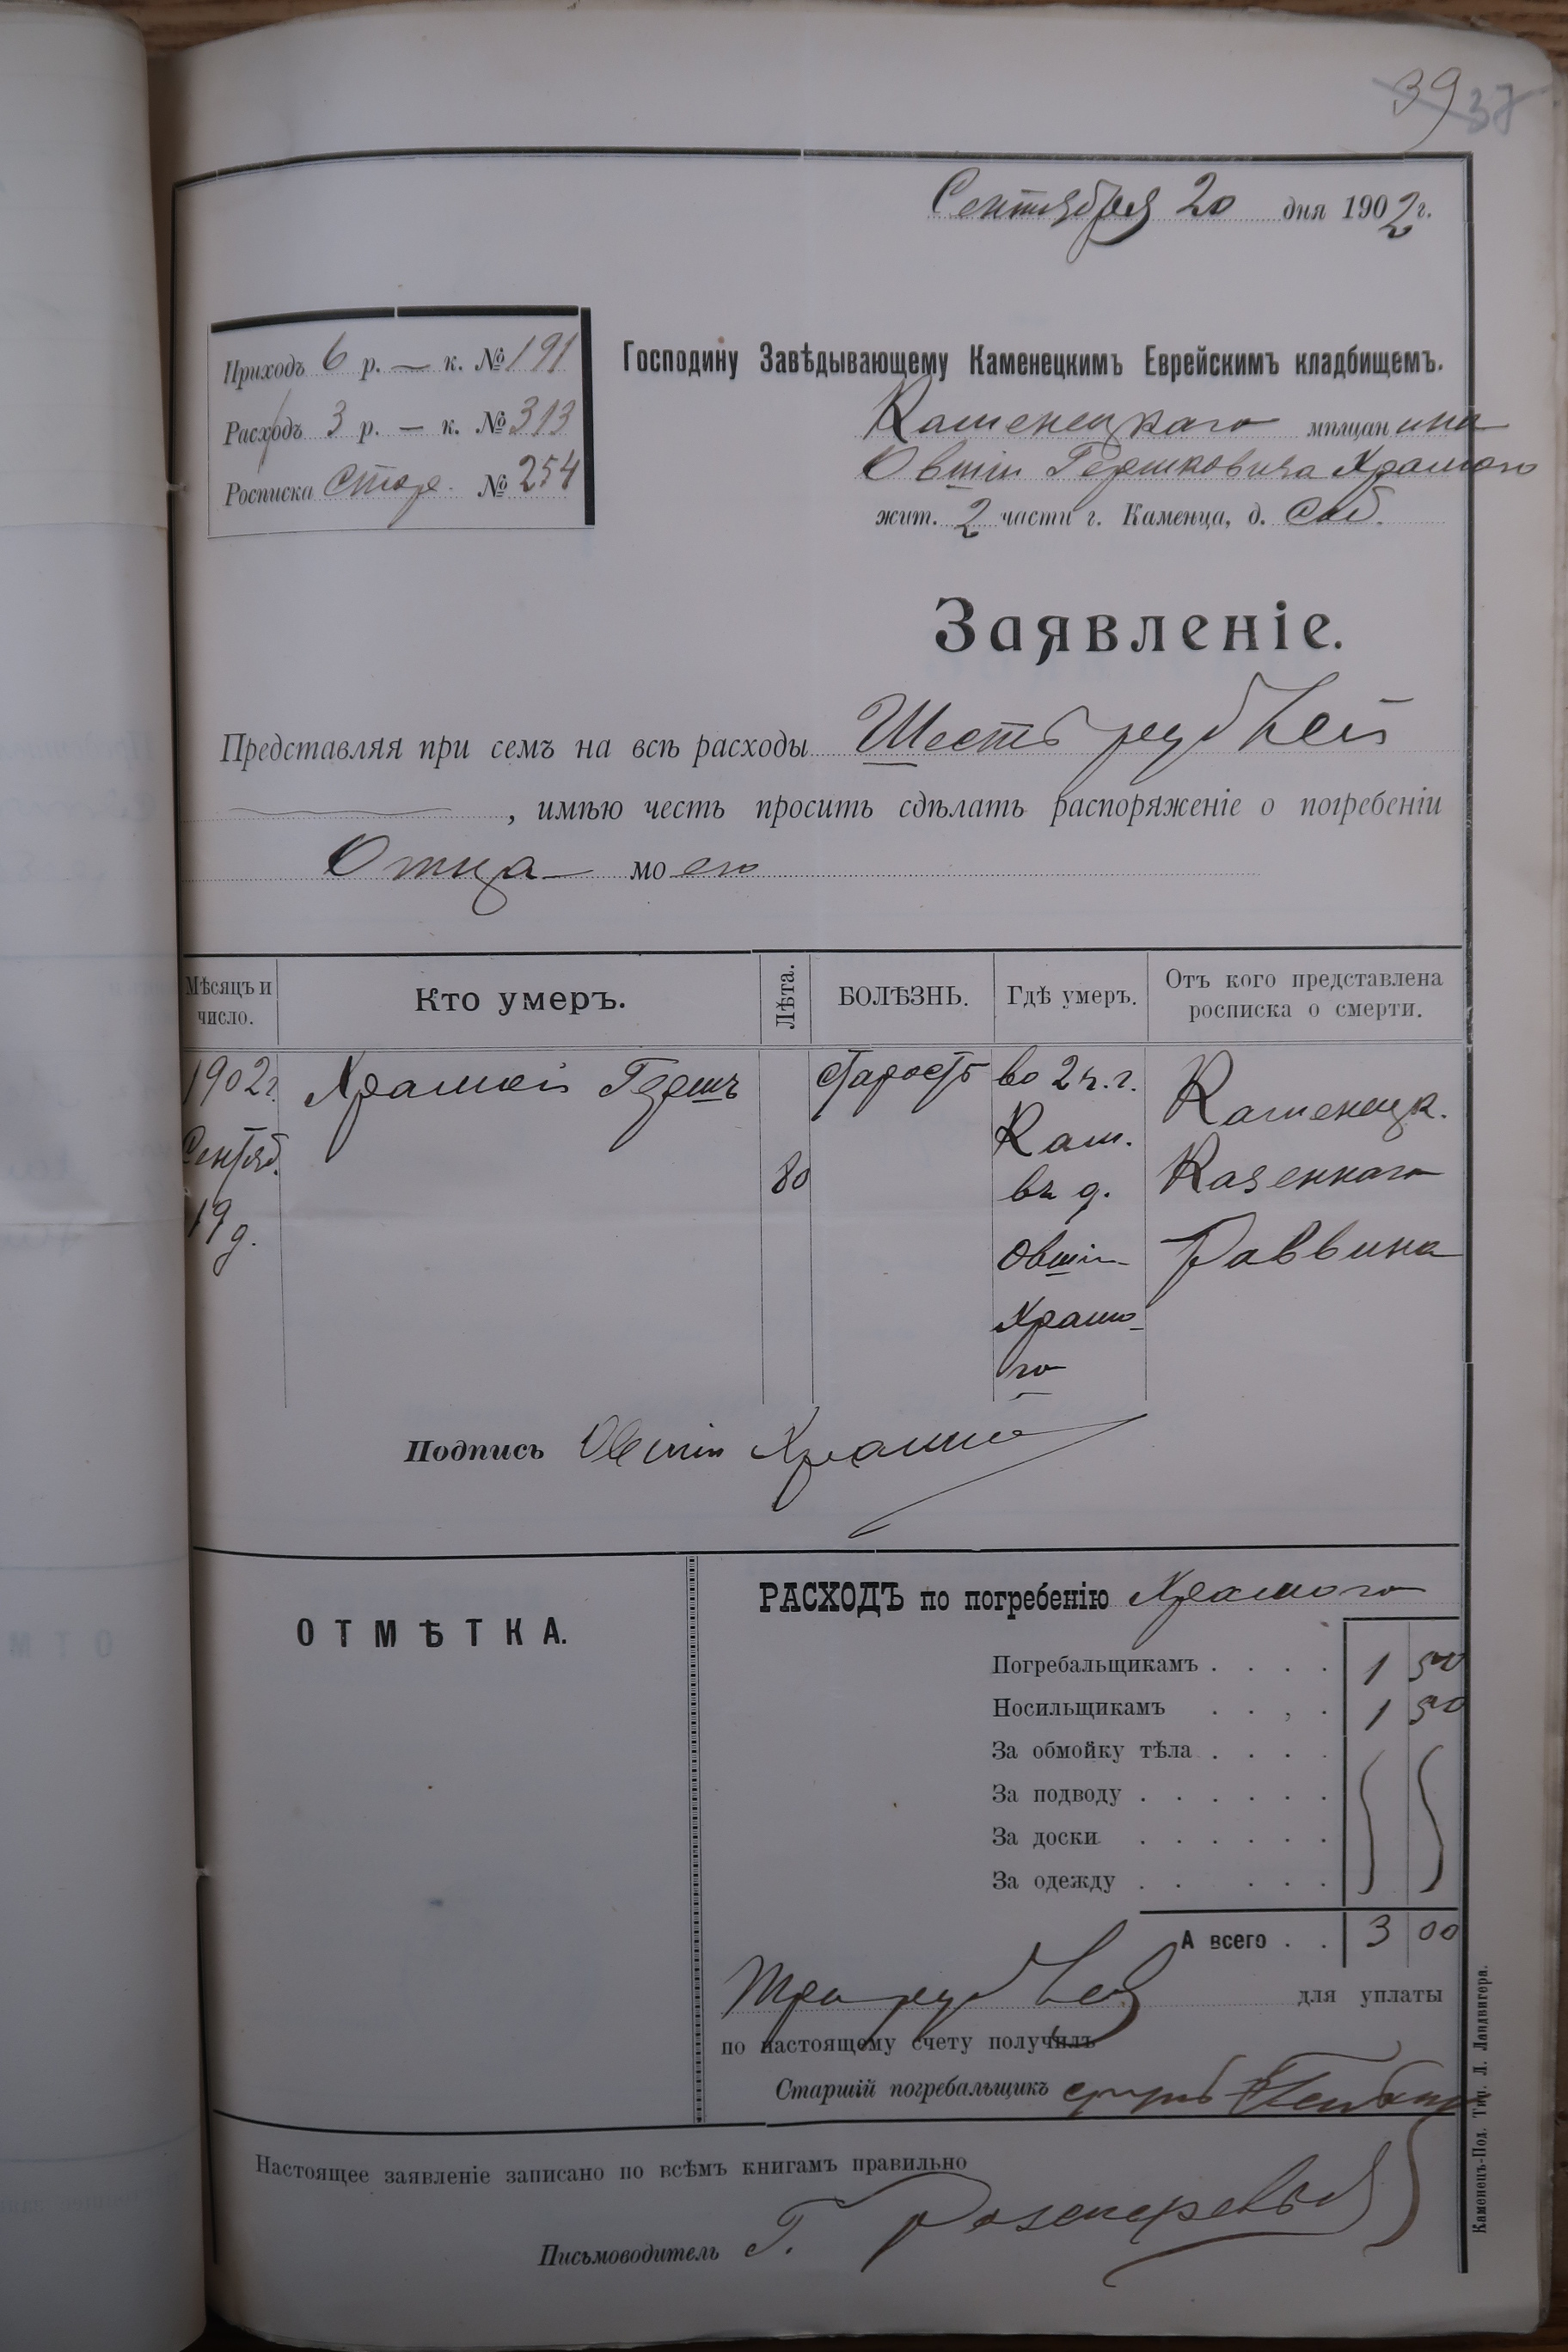 39 37
Сентября 20 дня 1902 г.
Приходъ 6 р. — к. № 191
Расходъ 3 р. — к. № 313
Росписка Стар. № 254
Господину Завѣдывающему Каменецкимъ Еврейскимъ кладбищемъ.
Каменецкаго мѣщанина
Овшія Гершковича Храмого
жит. 2 части г. Каменца, д. Соб.
Заявленіе.
Представляя при семъ на всѣ расходы Шесть рублей
, имѣю честь просить сдѣлать распоряженіе о погребеніи
Отца моего
Мѣсяцъ и число. Кто умеръ. Лѣта. БОЛѢЗНЬ. Гдѣ умеръ. Отъ кого представлена росписка о смерти.
1902 г. Храмой Гершъ старость во 2 ч. г. Каменецк.
Сентяб. 80 Кам. Казеннаго
19 д. въ д. Раввина
Овшія
Храмо-
го
Подпись Овшія Храмой
ОТМѢТКА.
РАСХОДЪ по погребенію Храмого
Погребальщикамъ . . . . 1 50
Носильщикамъ . . , . 1 50
За обмойку тѣла . . . .
За подводу . . . . . .
За доски . . . . . .
За одежду . . . . .
А всего . . 3 00
Три рубля для уплаты
по настоящему счету получилъ
Старшій погребальщикъ
Настоящее заявленіе записано по всѣмъ книгамъ правильно
Письмоводитель Г.
Каменецъ-Под. Тип. Л. Ландвигора.